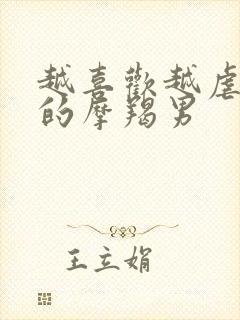 越喜歡越虐
的摩羯男
王立娟